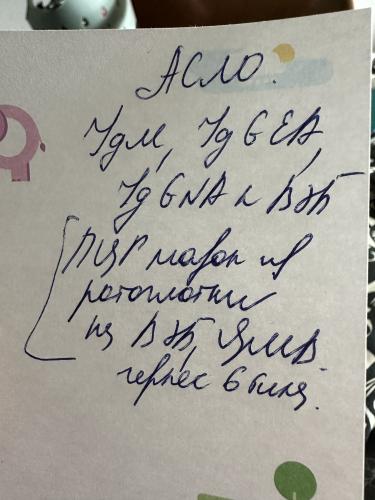 АСЛО.
IgM, IgG EA,
IgG NA к ВЭБ
ПЦР мазок из
ротоглотки
на ВЭБ, ЦМВ
герпес 6 типа.